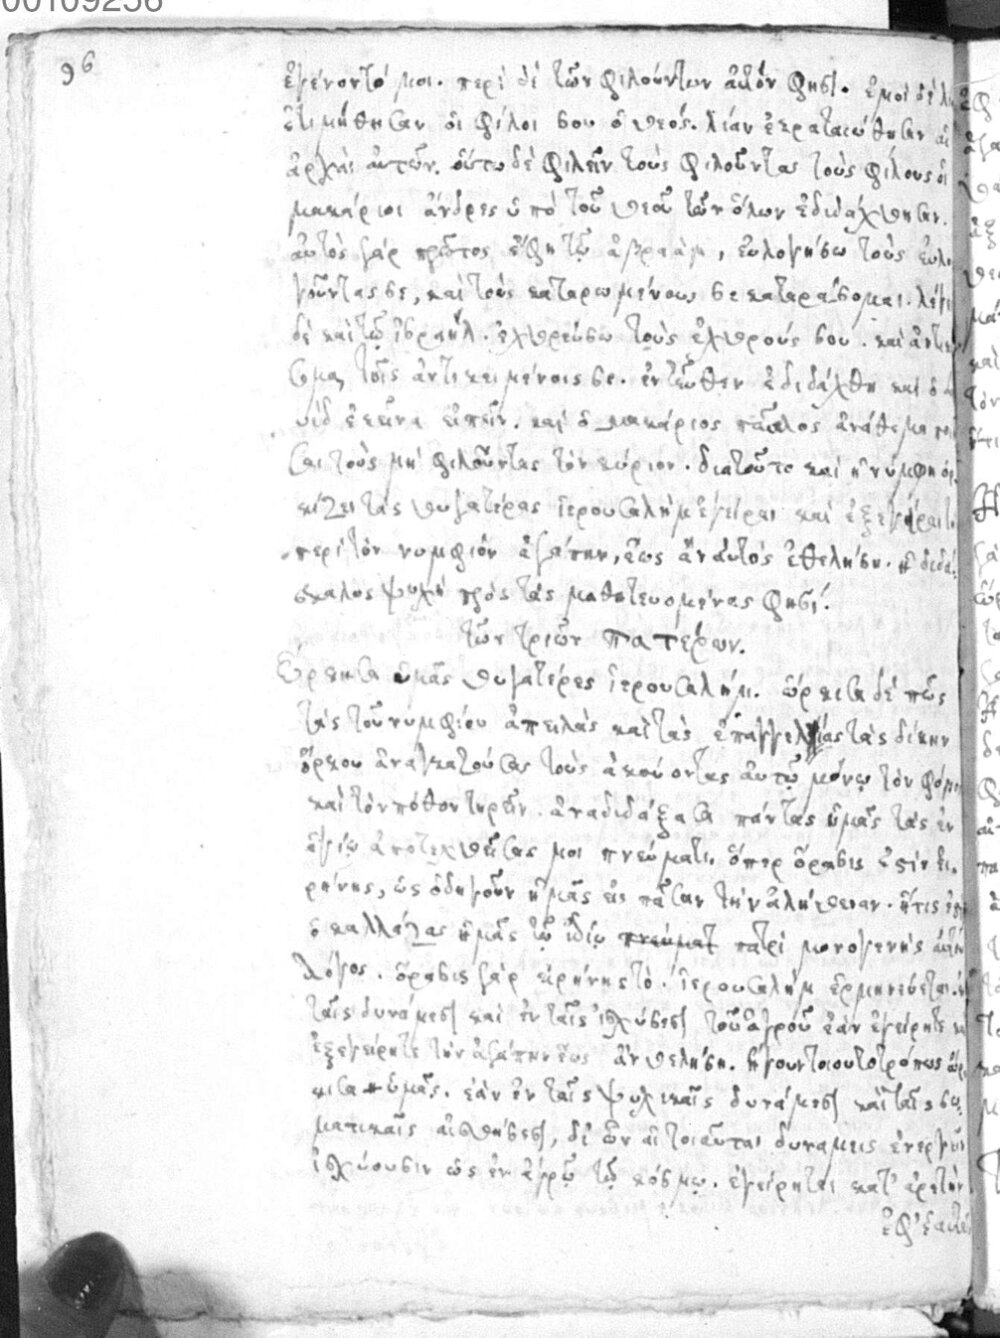 00109256
96
ἐγένοντό μοι. περὶ δὲ τῶν φιλούντων αὐτόν φησί. ἐμοὶ δὲ λί
ἐτιμήθησαν οἱ φίλοι σου ὁ θεός. λίαν ἐκραταιώθησαν αἱ
ἀρχαὶ αὐτῶν. οὕτω δὲ φιλεῖν τοὺς φιλοῦντας τοὺς φίλους οἱ
μακάριοι ἄνδρες ὑπὸ τοῦ θεοῦ τῶν ὅλων ἐδιδάχθησαν.
αὐτὸς γάρ πρῶτος ἔφη τῷ ἀβραὰμ, εὐλογήσω τοὺς εὐλο
γοῦντας σε, καὶ τοὺς καταρωμένους σε καταράσομαι. λέγει
δὲ καὶ τῷ ἰσραήλ. ἐχθρεύσω τοὺς ἐχθρούς σου. καὶ ἀντικεί
σομαι τοῖς ἀντικειμένοις σε. ἐντεῦθεν ἐδιδάχθη καὶ ὁ δα
υὶδ ἐκεῖνα εἰπεῖν. καὶ ὁ μακάριος παῦλος ἀνάθεμα
σαι τοὺς μὴ φιλοῦντας τὸν κύριον. διατοῦτο καὶ ἡ νύμφη ὁρ
κίζει τὰς θυγατέρας ἱερουσαλὴμ ἐγεῖραι καὶ ἐξεγεῖραι
περὶ τὸν νυμφίον ἀγάπην, ἕως ἂν αὐτὸς ἐθελήσῃ. ἡ διδά
σκαλος ψυχὴ πρὸς τὰς μαθητευομένας φησί.
τῶν τριῶν πατέρων.
Ὥρκισα ὑμᾶς θυγατέρες ἱερουσαλήμ. ὥρκισα δέ πως
τὰς τοῦ νυμφίου ἀπειλὰς καὶ τὰς ἐπαγγελίας τὰς δίκην
ὅρκου ἀναγκαζούσας τοὺς ἀκούοντας αὐτῷ μόνῳ τὸν φόβον
καὶ τὸν πόθον τηρεῖν. ἀναδιδάξασα πάντας ὑμᾶς τὰς ἐν
ἁγίῳ ἀποτεχθείσας μοι πνεύματι. ὅπερ ὅρασις ἐστὶν εἰ
ρήνης, ὡς ὁδηγοῦν ἡμᾶς εἰς πᾶσαν τὴν ἀλήθειαν. ἥτις ἐστὶ
ὁ καλλάξας ἡμᾶς τῷ ἰδίῳ πνεύματ πατρὶ μονογενὴς αὐτοῦ
λόγος. ὅρασις γὰρ εἰρήνης τὸ ἱερουσαλὴμ ἑρμηνεύεται. ἐν
ταῖς δυνάμεσι καὶ ἐν ταῖς ἰσχύσεσι τοῦ ἀγροῦ ἐὰν ἐγείρητε καὶ
ἐξεγείρητε τὴν ἀγάπην ἕως ἂν θελήσῃ. ἤγουν τοιουτοτρόπως ὥρ
κισα ὑμᾶς. ἐὰν ἐν ταῖς ψυχικαῖς δυνάμεσι καὶ ταῖς σω
ματικαῖς αἰσθήσεσι, δι ὧν αἱ τοιαῦται δυνάμεις ἐνεργεῖν
ἰσχύουσιν ὡς ἐν ἀγρῷ τῷ κόσμῳ. ἐγείρηται κατ' ἀρετὴν
ἐφ' ἑαυτὸ